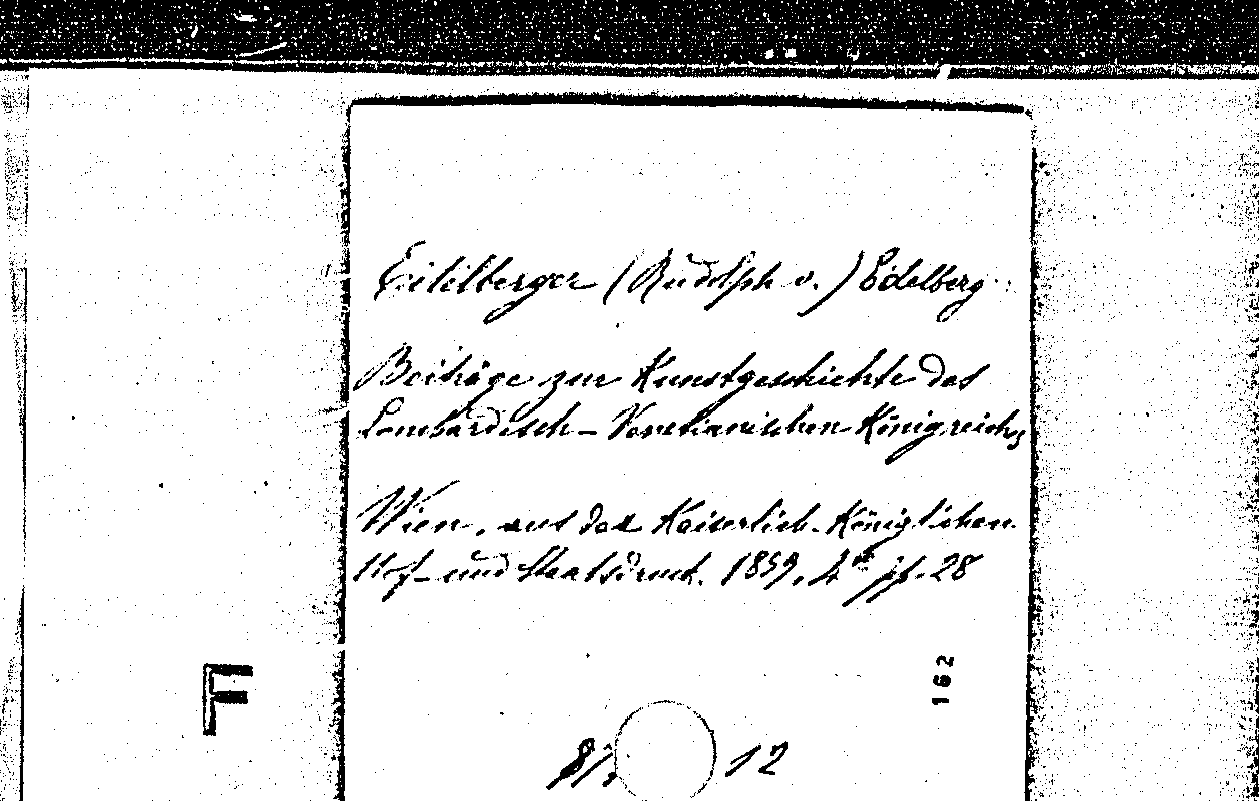 Eitelberger (Rudolph v.) Edelberg
Beiträge zur Kunstgeschichte des
Lombardisch-Venetianischen Königreichs
Wien, aus der Kaiserlich-Königlichen
Hof- und Staatsdruck. 1859, 4° pp. 28
F
162
12